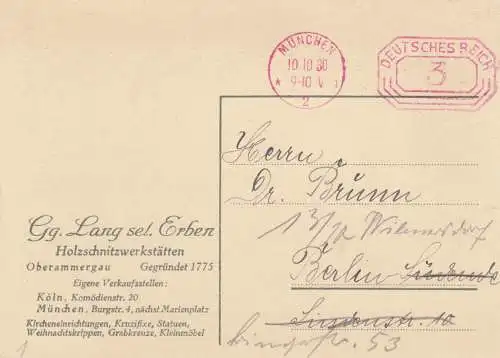 MÜNCHEN
10 10 30
9-10 V
2
DEUTSCHES REICH
3
Herrn
Dr. Brunn
Wilmersdorf
Berlin Südende
Lindenstr. 10
53
Gg. Lang sel. Erben
Holzschnitzwerkstätten
Oberammergau Gegründet 1775
Eigene Verkaufsstellen:
Köln, Komödienstr. 20
München, Burgstr. 4, nächst Marienplatz
Kircheneinrichtungen, Kruzifixe, Statuen,
Weihnachtskrippen, Grabkreuze, Kleinmöbel